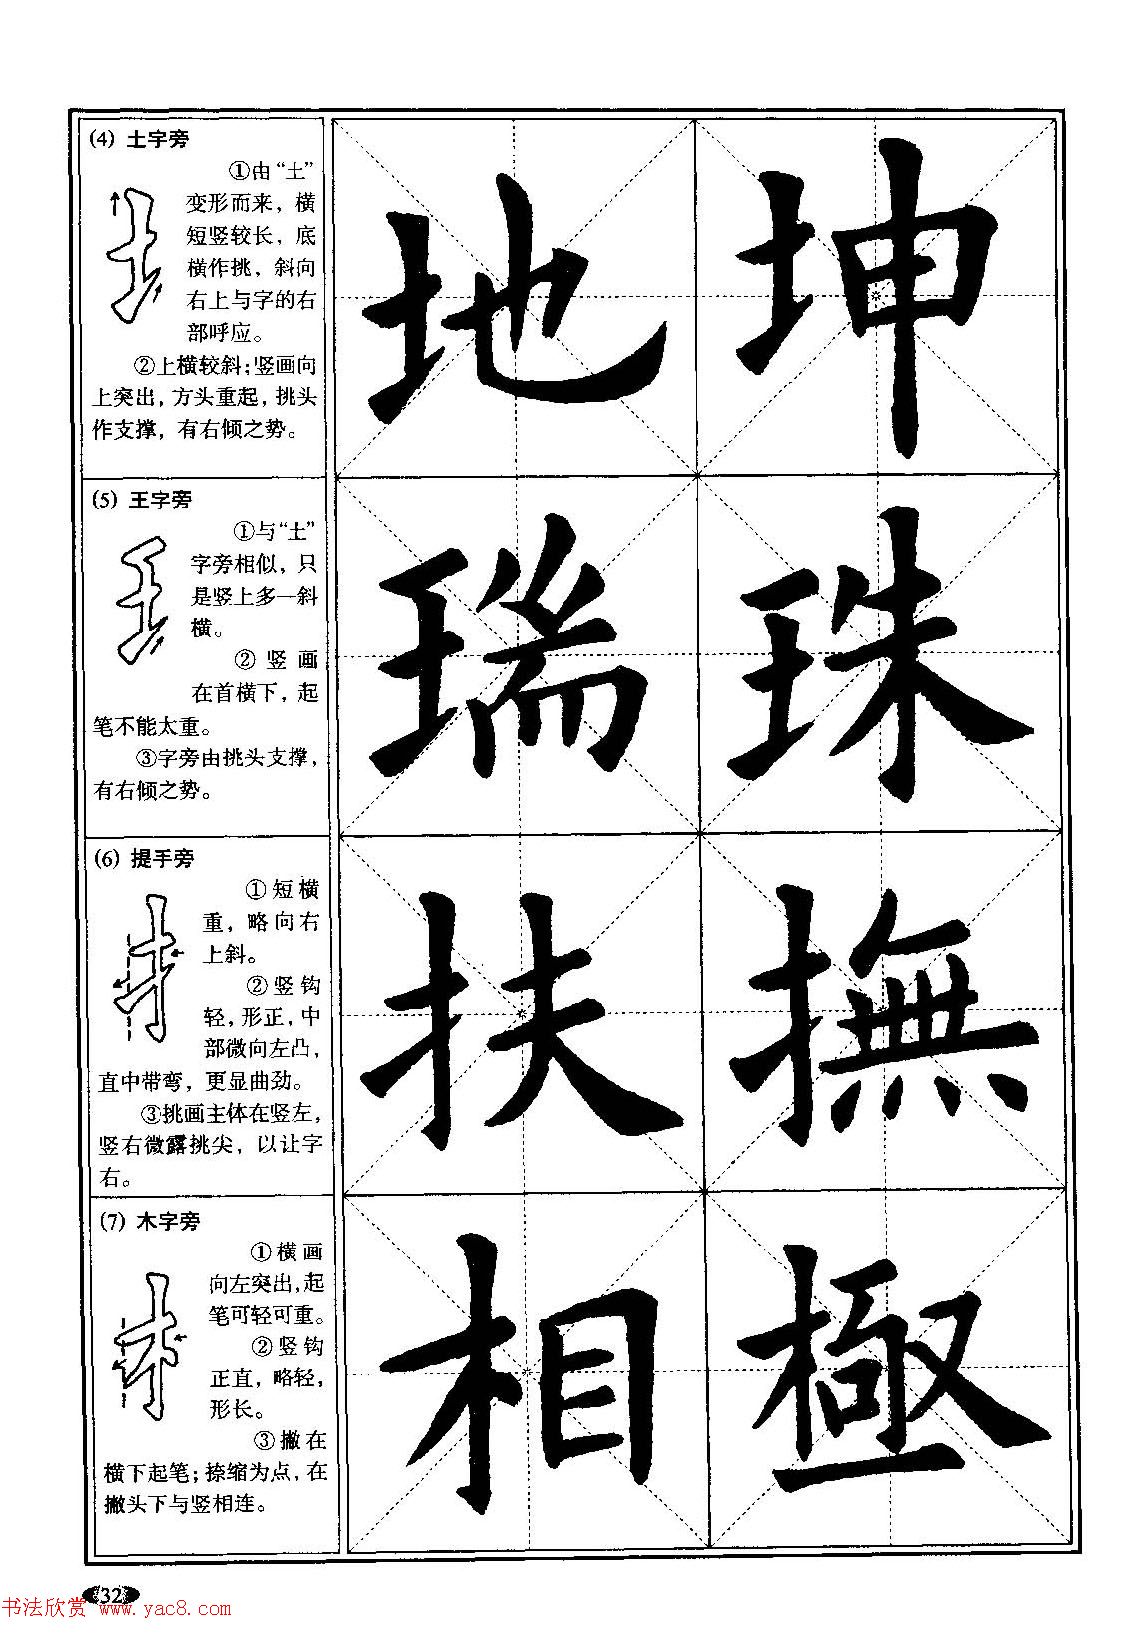 (4) 土字旁
①由“土”
变形而来，横
短竖较长，底
横作挑，斜向
右上与字的右
部呼应。
②上横较斜；竖画向
上突出，方头重起，挑头
作支撑，有右倾之势。
地 坤
(5) 王字旁
①与“土”
字旁相似，只
是竖上多一斜
横。
②竖画
在首横下，起
笔不能太重。
③字旁由挑头支撑，
有右倾之势。
瑞 珠
(6) 提手旁
①短横
重，略向右
上斜。
②竖钩
轻，形正，中
部微向左凸，
直中带弯，更显曲劲。
③挑画主体在竖左，
竖右微露挑尖，以让字
右。
扶 撫
(7) 木字旁
①横画
向左突出，起
笔可轻可重。
②竖钩
正直，略轻，
形长。
③撇在
横下起笔；捺缩为点，在
撇头下与竖相连。
相 極
32
书法欣赏 www.yac8.com